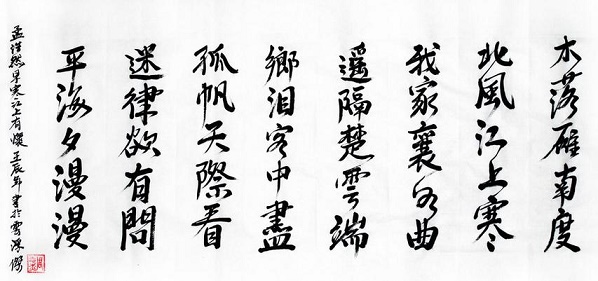 木落雁南度
北風江上寒
我家襄水曲
遥隔楚雲端
鄉泪客中盡
孤帆天際看
迷津欲有問
平海夕漫漫
孟浩然早寒江上有懷 壬辰年書於雲深